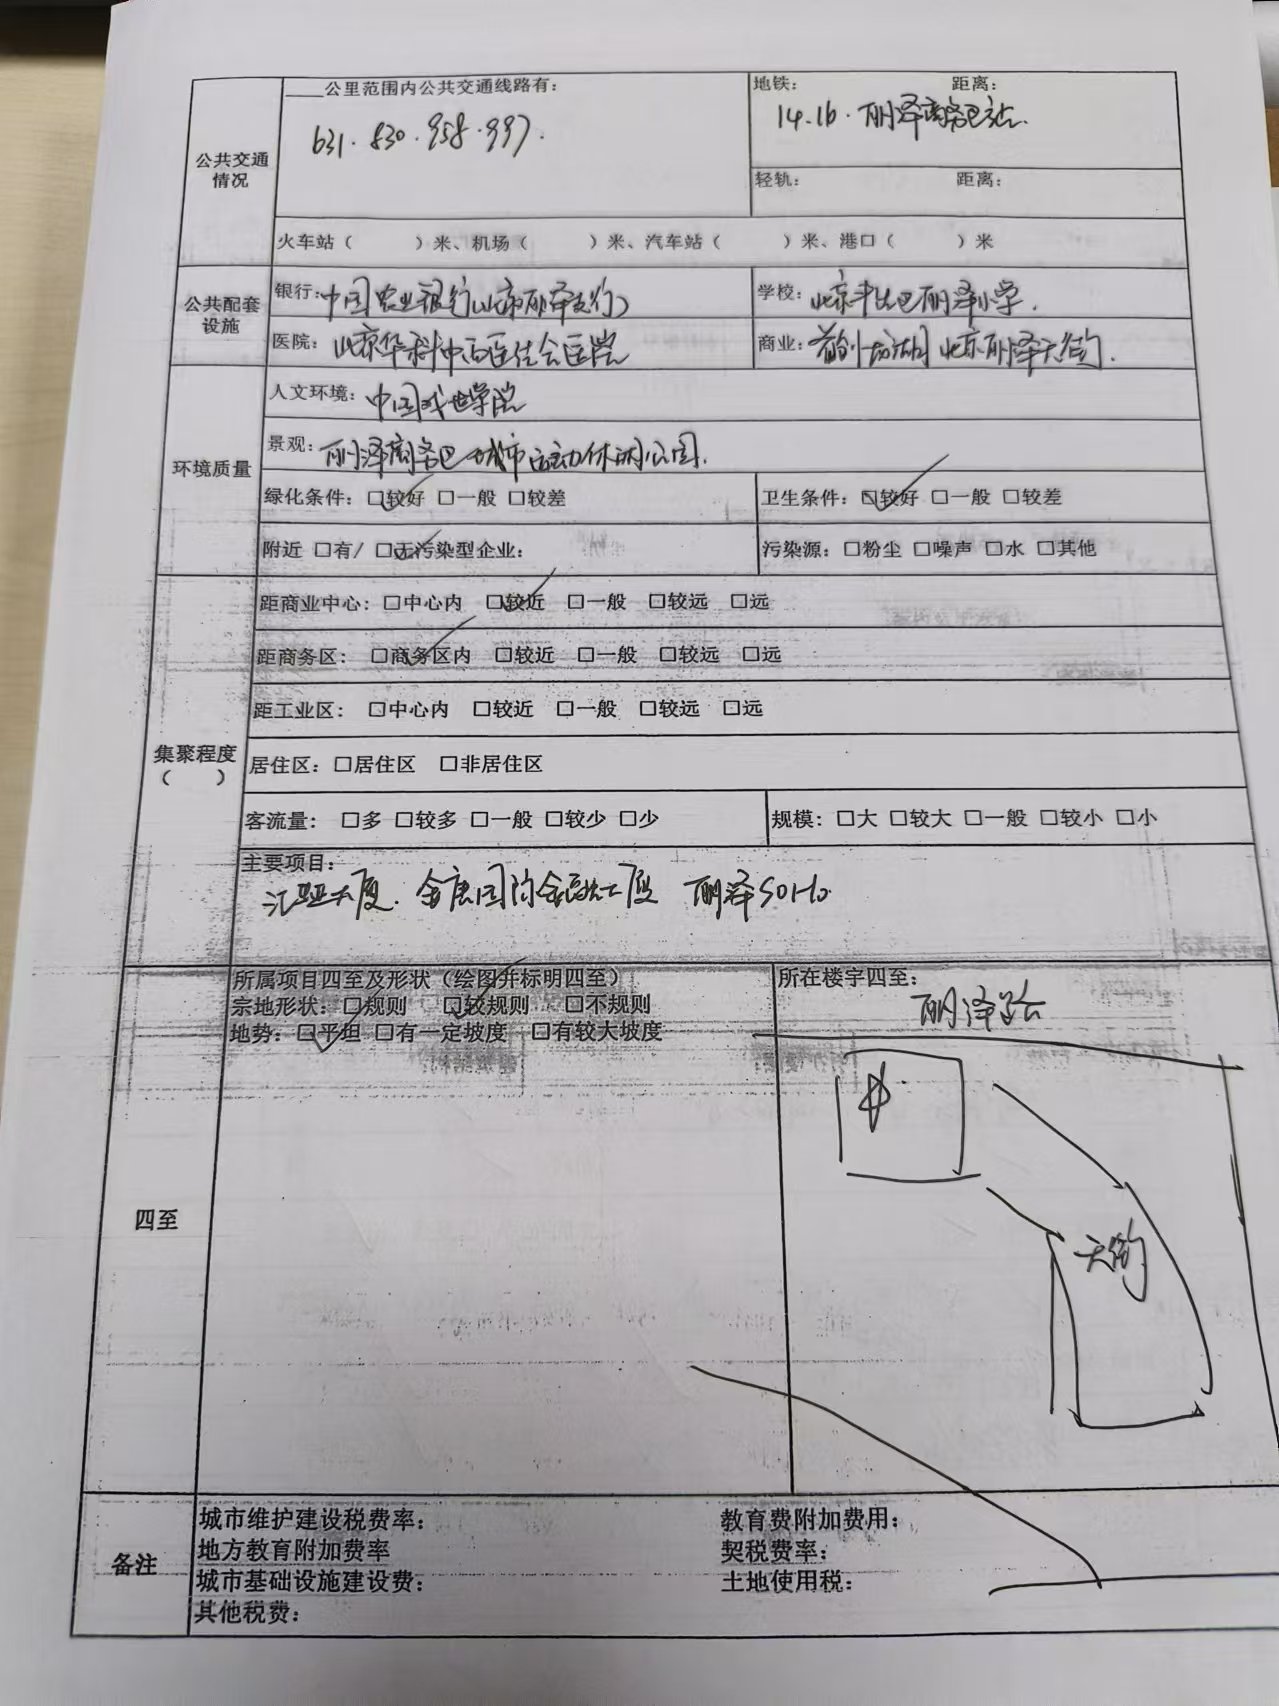 ____公里范围内公共交通线路有：
631·830·958·997·
公共交通
情况
地铁： 距离：
14.16·丽泽商务区站
轻轨： 距离：
火车站（ ）米、机场（ ）米、汽车站（ ）米、港口（ ）米
公共配套
设施
银行：中国农业银行（北京丽泽支行）
学校：北京丰台区丽泽小学.
医院：北京华科中西医结合医院
商业：首创 北京丽泽天街.
环境质量
人文环境：中国戏曲学院
景观：丽泽商务区城市运动休闲公园.
绿化条件：☑较好 □一般 □较差
卫生条件：☑较好 □一般 □较差
附近 □有/ ☑无污染型企业：
污染源：□粉尘 □噪声 □水 □其他
集聚程度
（ ）
距商业中心：□中心内 ☑较近 □一般 □较远 □远
距商务区： ☑商务区内 □较近 □一般 □较远 □远
距工业区： □中心内 □较近 □一般 □较远 □远
居住区：□居住区 □非居住区
客流量： □多 □较多 □一般 □较少 □少
规模：□大 □较大 □一般 □较小 □小
主要项目：
汇亚大厦. 金唐国际金融大厦 丽泽SOHO
四至
所属项目四至及形状（绘图并标明四至）
宗地形状：□规则 ☑较规则 □不规则
地势：☑平坦 □有一定坡度 □有较大坡度
所在楼宇四至：
丽泽路
天街
备注
城市维护建设税费率： 教育费附加费用：
地方教育附加费率 契税费率：
城市基础设施建设费： 土地使用税：
其他税费：